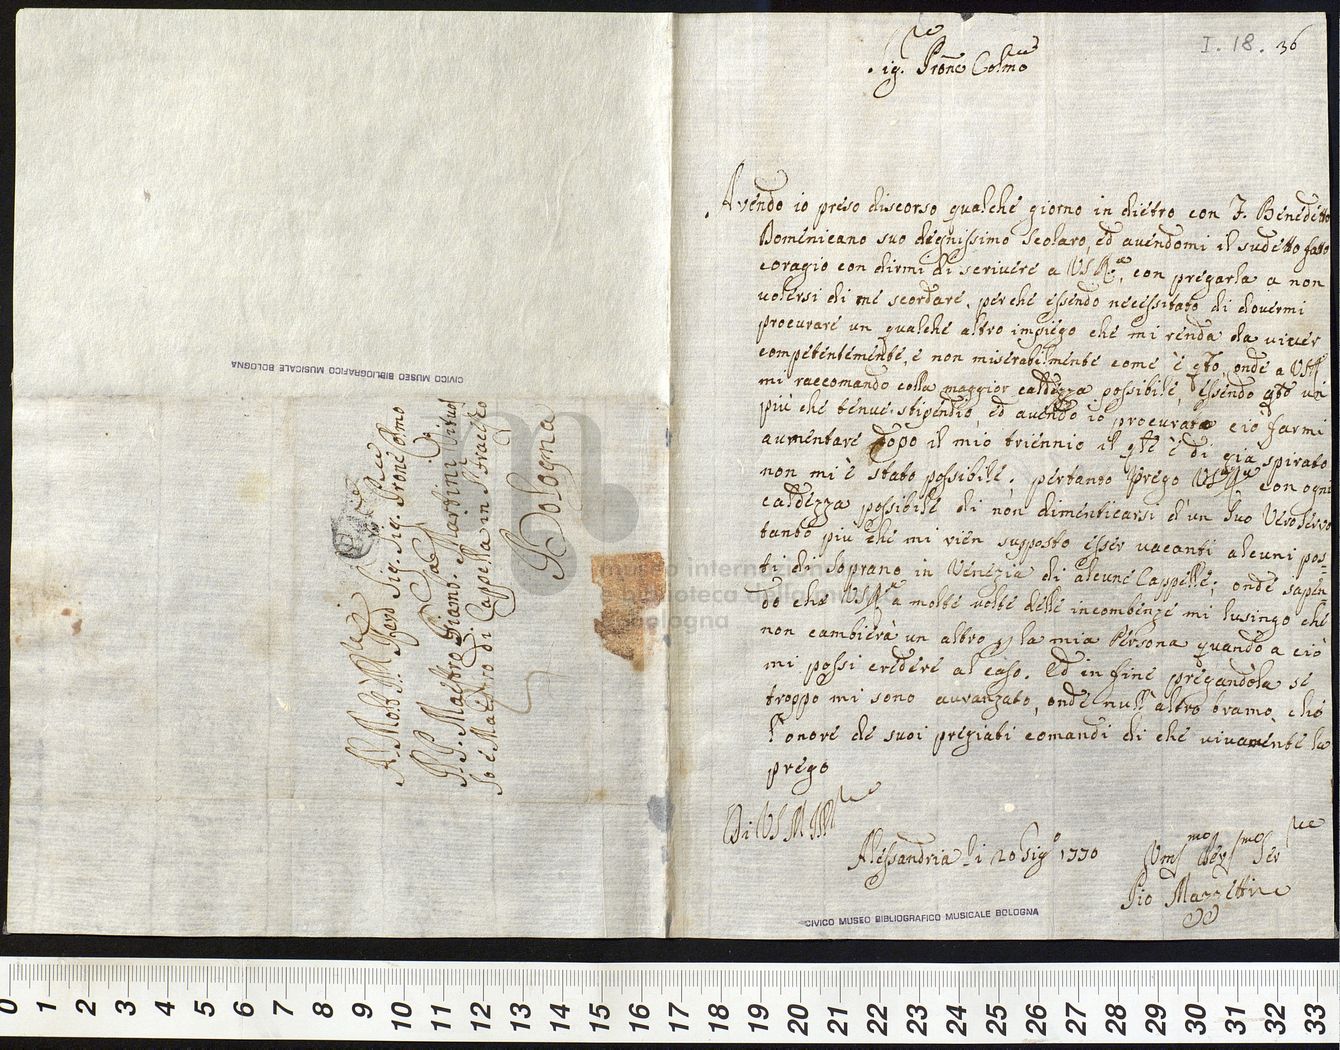 I. 18. 36
Sig.r Prone Colmo
Avendo io preso discorso qualche giorno in dietro con F. Benedetto
Domenicano suo degnissimo scolaro, ed avendomi il sudetto fatto
coragio con dirmi di scrivere a VSR.a, con pregarla a non
volersi di me scordare, perche essendo necessitato di dovermi
procurare un qualche altro impiego che mi renda da viver
competentemente, e non miserabilmente come è qto, onde a VSR
mi raccomando colla maggior caldezza possibile, essendo qto un
più che tenue stipendio, ed avendo io procurato ciò farmi
aumentare dopo il mio triennio il qle è di già spirato
non mi è stato possibile. pertanto prego VSR.a con ogni
caldezza possibile di non dimenticarsi d'un suo vero servo
tanto più che mi vien supposto esser vacanti alcuni pos-
ti di Soprano in Venezia di alcune Cappelle; onde sapen
do che VSR.a a molte volte delle incombenze mi lusingo che
non cambierà un altro p la mia Persona quando a ciò
mi possi credere al caso. Ed in fine pregandola se
troppo mi sono avvanzato, onde null'altro bramo che
l'onore de suoi pregiati comandi di che vivamente la
prego
Di VS M
Alessandria li 20 1770
Umo Ser
Pio Mazzetti
CIVICO MUSEO BIBLIOGRAFICO MUSICALE BOLOGNA
CIVICO MUSEO BIBLIOGRAFICO MUSICALE BOLOGNA
Sig. Sig. Prone Colmo
P. Maestro Giamb. Martini
e Maestro di Cappella in S. Fracesco
Bologna
museo internazionale
e biblioteca della musica
di bologna
0 1 2 3 4 5 6 7 8 9 10 11 12 13 14 15 16 17 18 19 20 21 22 23 24 25 26 27 28 29 30 31 32 33